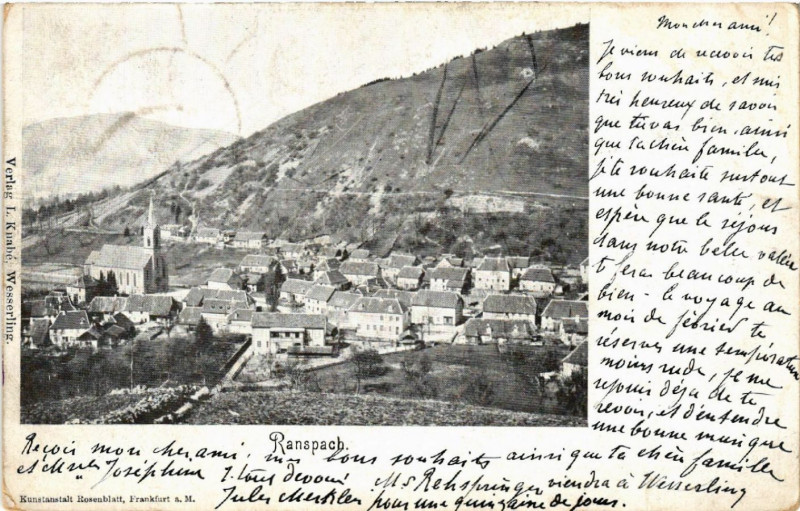 Mon cher ami!
Je viens de recevoir tes
bons souhaits, et suis
très heureux de savoir
que tu vas bien, ainsi
que ta chère famille,
je te souhaite surtout
une bonne santé, et
espère que le séjour
dans notre belle vallée
te fera beaucoup de
bien - le voyage au
mois de février te
réserve une température
moins rude, je me
réjouis déjà de te
revoir, et d'entendre
une bonne musique
Ranspach.
Reçois mon cher ami, mes bons souhaits ainsi que ta chère famille
et Joséphine t. tout dévoué Mr Rehspringer viendra à Wesserling
Jules pour une quinzaine de jours.
Verlag L. Knahé, Wesserling.
Kunstanstalt Rosenblatt, Frankfurt a. M.